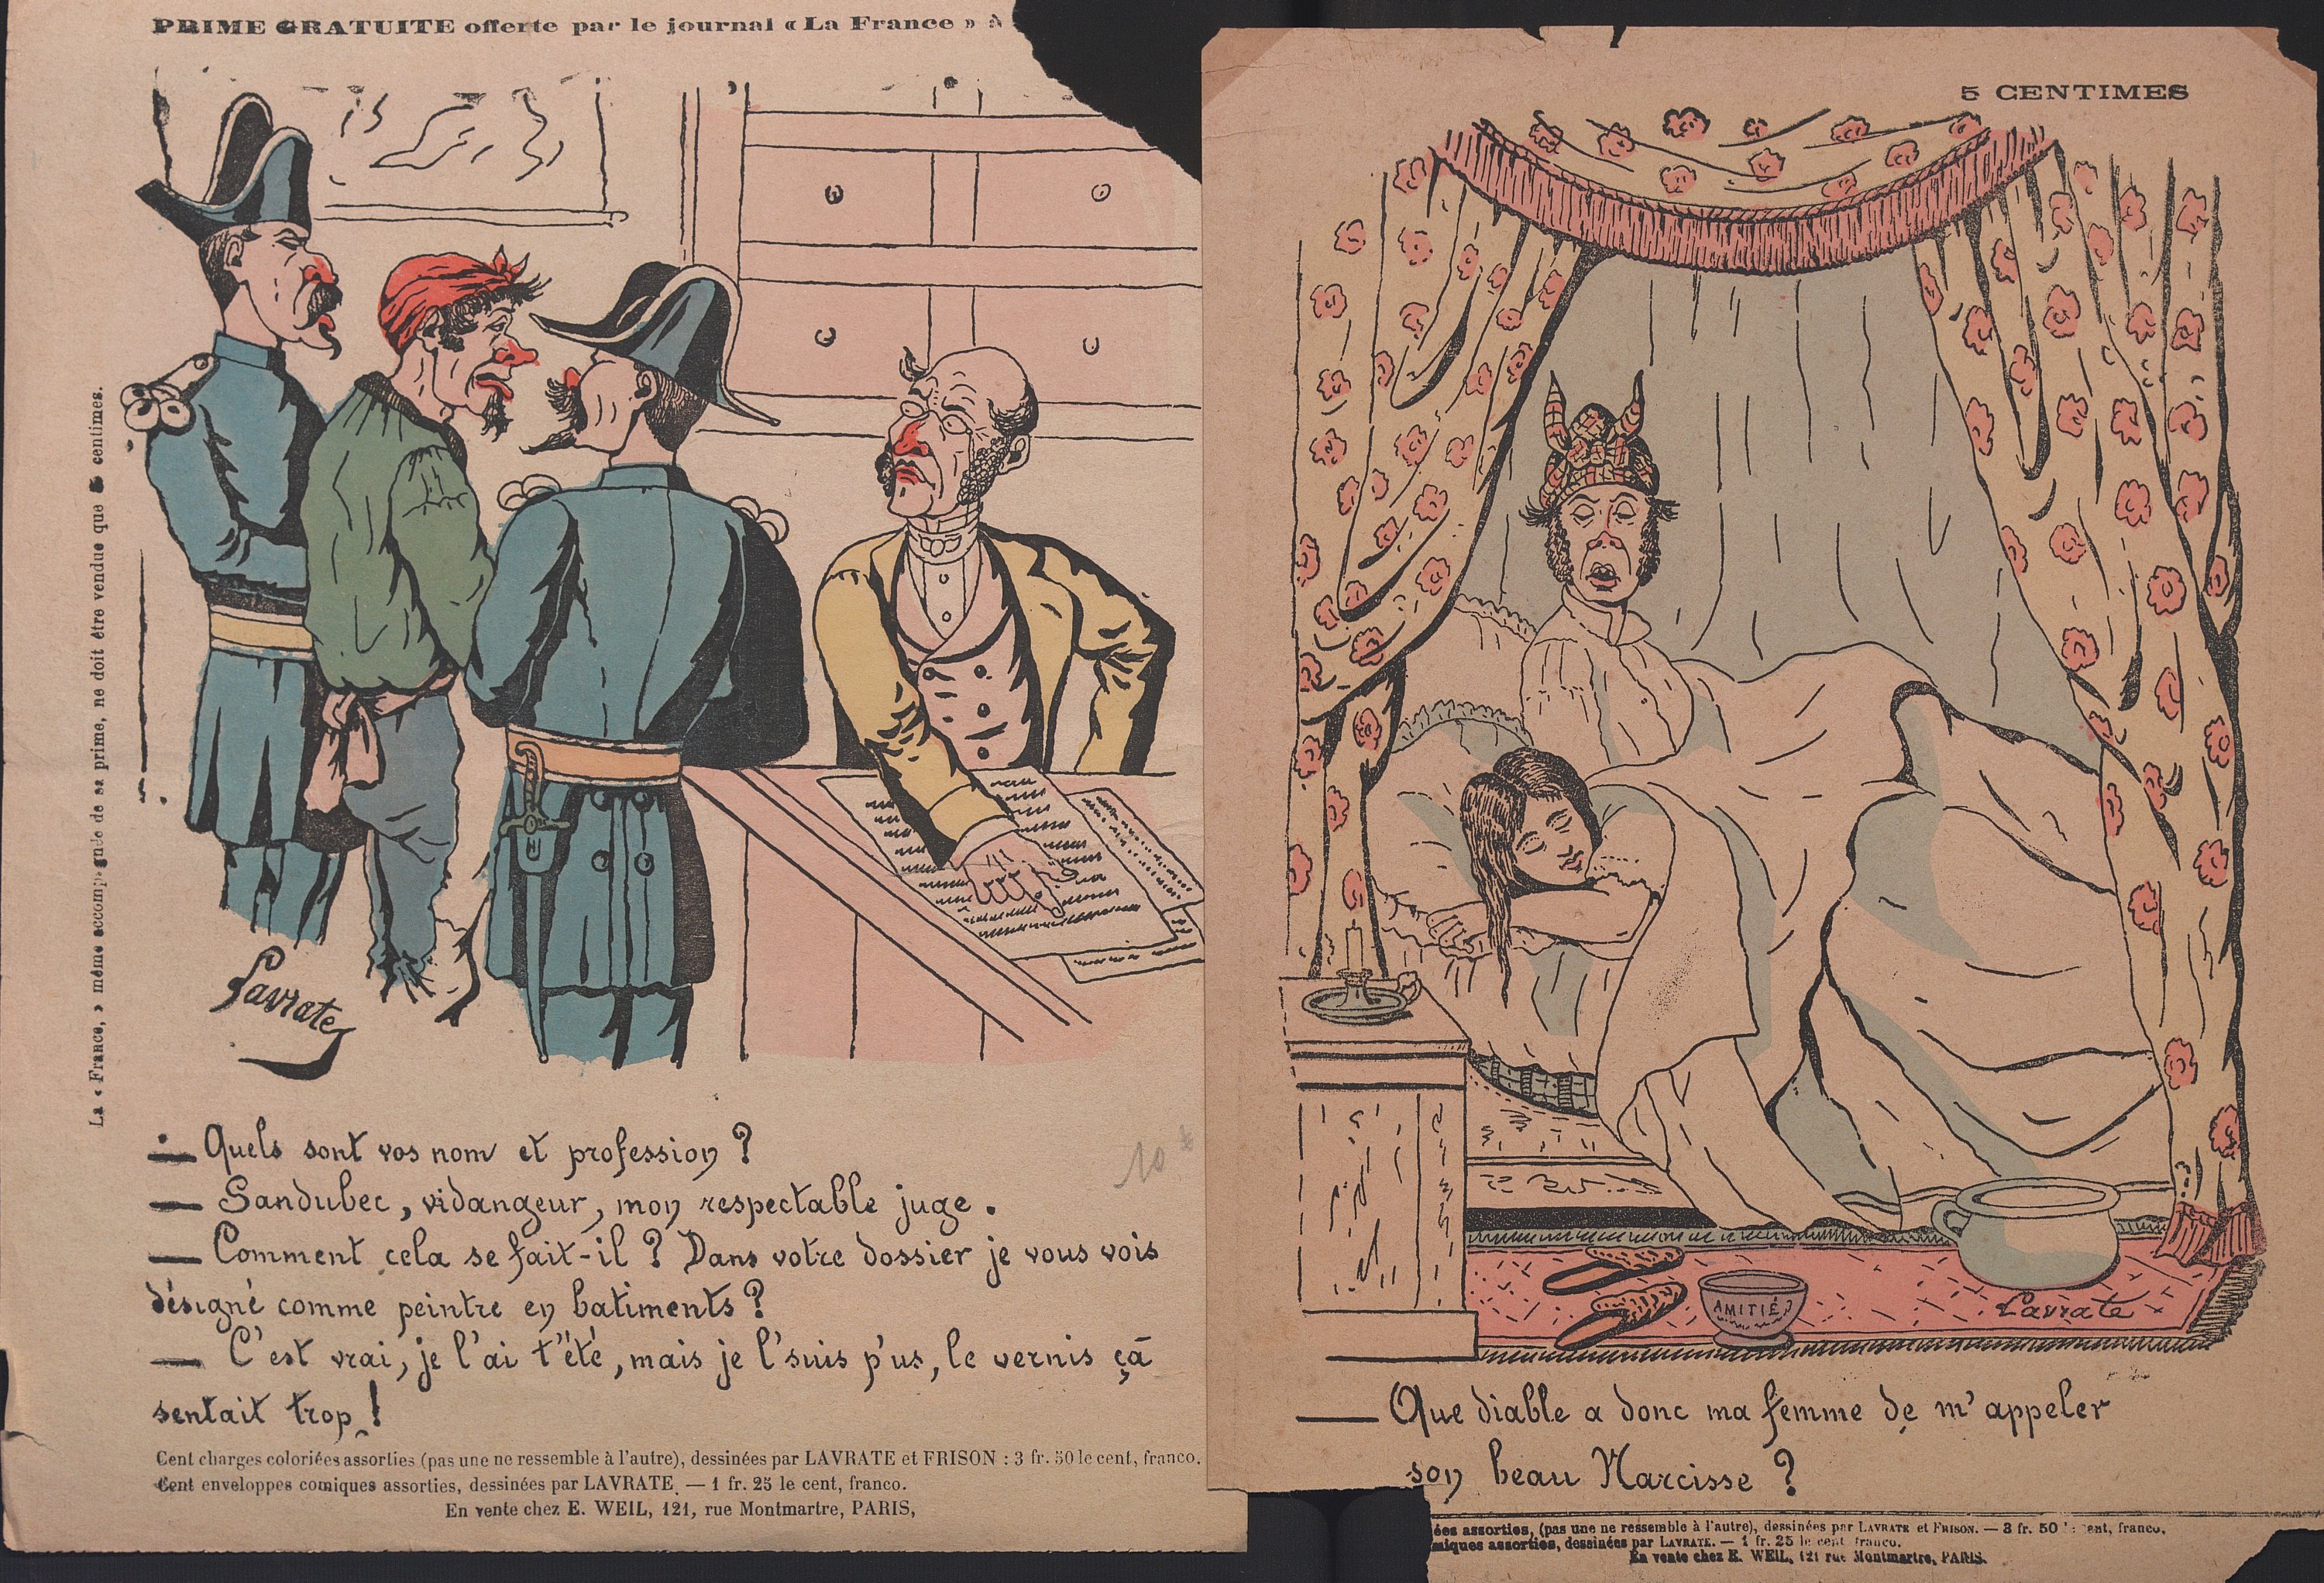 PRIME GRATUITE offerte par le journal « La France » à
La « France, » même accompagnée de sa prime, ne doit être vendue que 5 centimes.
Lavrate
— Quels sont vos nom et profession ?
— Sandubec, vidangeur, mon respectable juge.
— Comment cela se fait-il ? Dans votre dossier je vous vois
désigné comme peintre en batiments ?
— C'est vrai, je l'ai t'été, mais je l'suis p'us, le vernis çà
sentait trop !
10
Cent charges coloriées assorties (pas une ne ressemble à l'autre), dessinées par LAVRATE et FRISON : 3 fr. 50 le cent, franco.
Cent enveloppes comiques assorties, dessinées par LAVRATE. — 1 fr. 25 le cent, franco.
En vente chez E. WEIL, 121, rue Montmartre, PARIS,
5 CENTIMES
AMITIÉ
Lavrate
— Que diable a donc ma femme de m'appeler
son beau Narcisse ?
ées assorties, (pas une ne ressemble à l'autre), dessinées par LAVRATE et FRISON. — 3 fr. 50 franco,
miques assorties, dessinées par LAVRATE. — 1 fr. 25 le cent franco.
En vente chez E. WEIL, 121 rue Montmartre, PARIS.